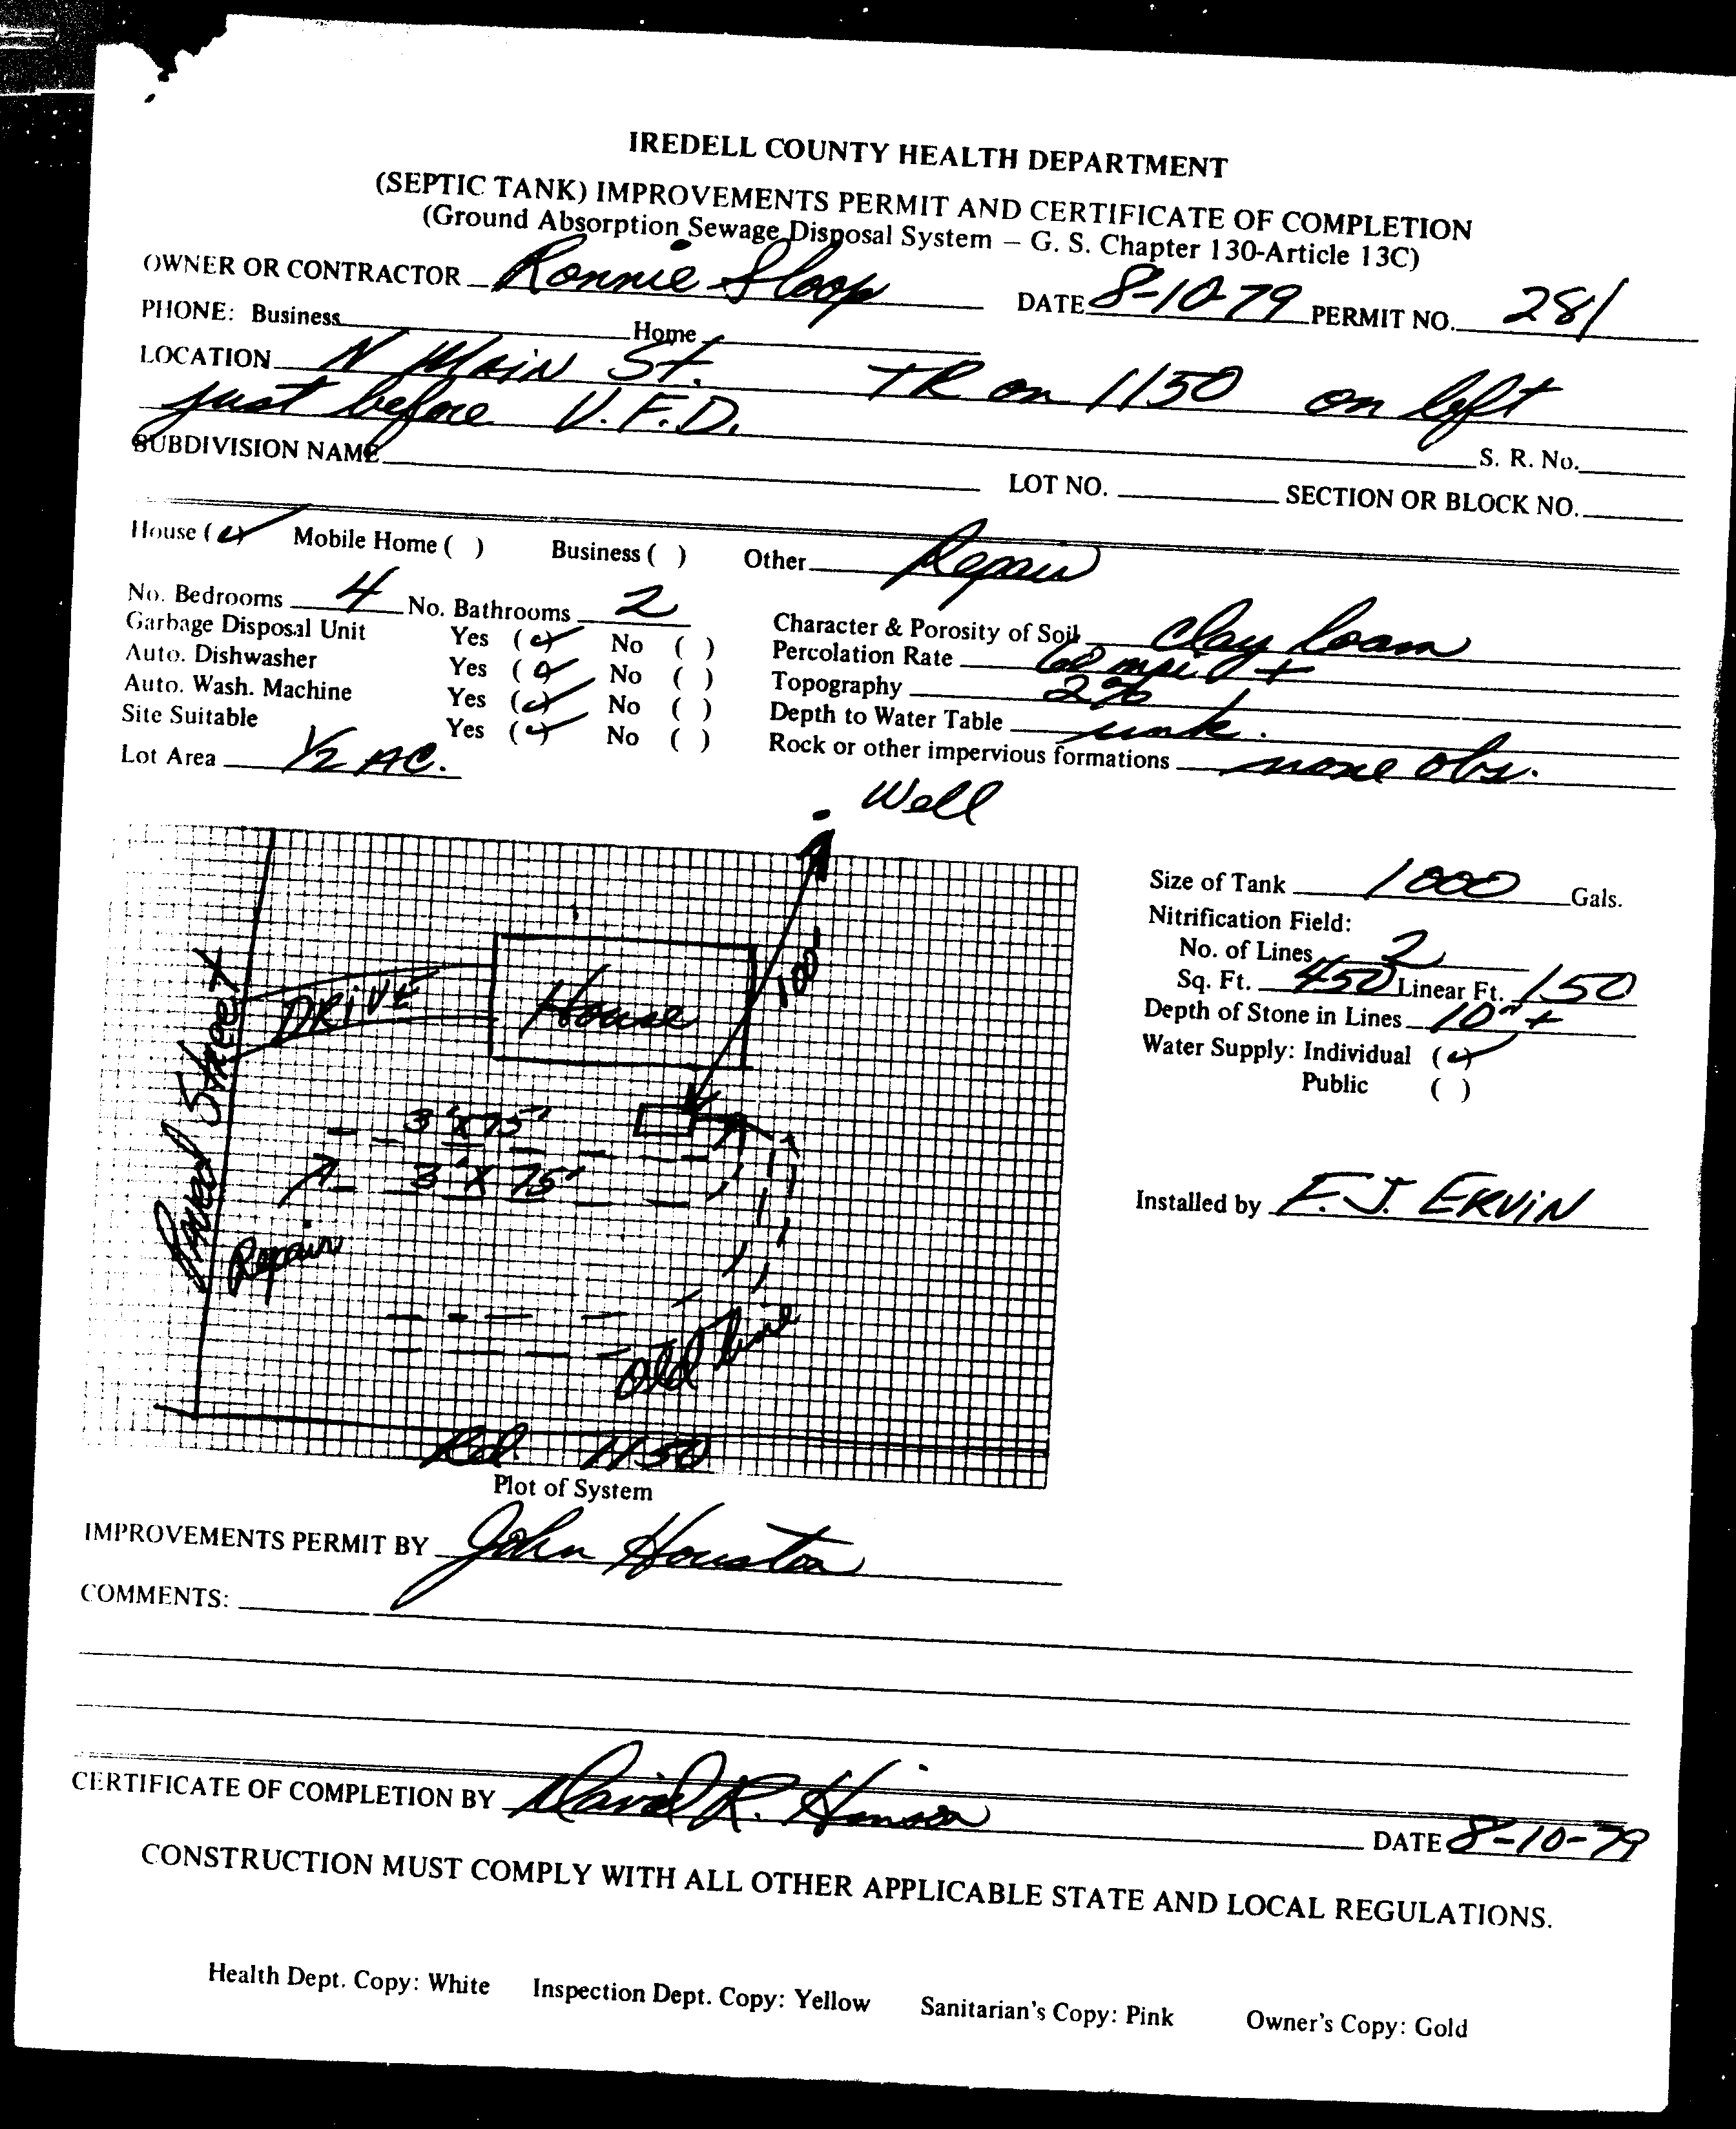 IREDELL COUNTY HEALTH DEPARTMENT
(SEPTIC TANK) IMPROVEMENTS PERMIT AND CERTIFICATE OF COMPLETION
(Ground Absorption Sewage Disposal System – G. S. Chapter 130-Article 13C)
OWNER OR CONTRACTOR Ronnie Sloop DATE 8-10-79 PERMIT NO. 281
PHONE: Business Home
LOCATION N Main St. TR on 1150 on left
just before V.F.D. S. R. No.
SUBDIVISION NAME LOT NO. SECTION OR BLOCK NO.
House (✓) Mobile Home ( ) Business ( ) Other Repair
No. Bedrooms 4 No. Bathrooms 2
Garbage Disposal Unit Yes (✓) No ( )
Auto. Dishwasher Yes (✓) No ( )
Auto. Wash. Machine Yes (✓) No ( )
Site Suitable Yes (✓) No ( )
Lot Area 1/2 AC.
Character & Porosity of Soil Clay loam
Percolation Rate 60 mpi +
Topography 2%
Depth to Water Table unk.
Rock or other impervious formations none obs.
Well
100'
House
DRIVE
Paved Street
3'X75'
3'X75'
Repair
Old line
Rd. 1150
Plot of System
Size of Tank 1000 Gals.
Nitrification Field:
No. of Lines 2
Sq. Ft. 450 Linear Ft. 150
Depth of Stone in Lines 10"+
Water Supply: Individual (✓)
Public ( )
Installed by F.J. ERViN
IMPROVEMENTS PERMIT BY John Houston
COMMENTS:
CERTIFICATE OF COMPLETION BY David R. Hinson DATE 8-10-79
CONSTRUCTION MUST COMPLY WITH ALL OTHER APPLICABLE STATE AND LOCAL REGULATIONS.
Health Dept. Copy: White Inspection Dept. Copy: Yellow Sanitarian's Copy: Pink Owner's Copy: Gold